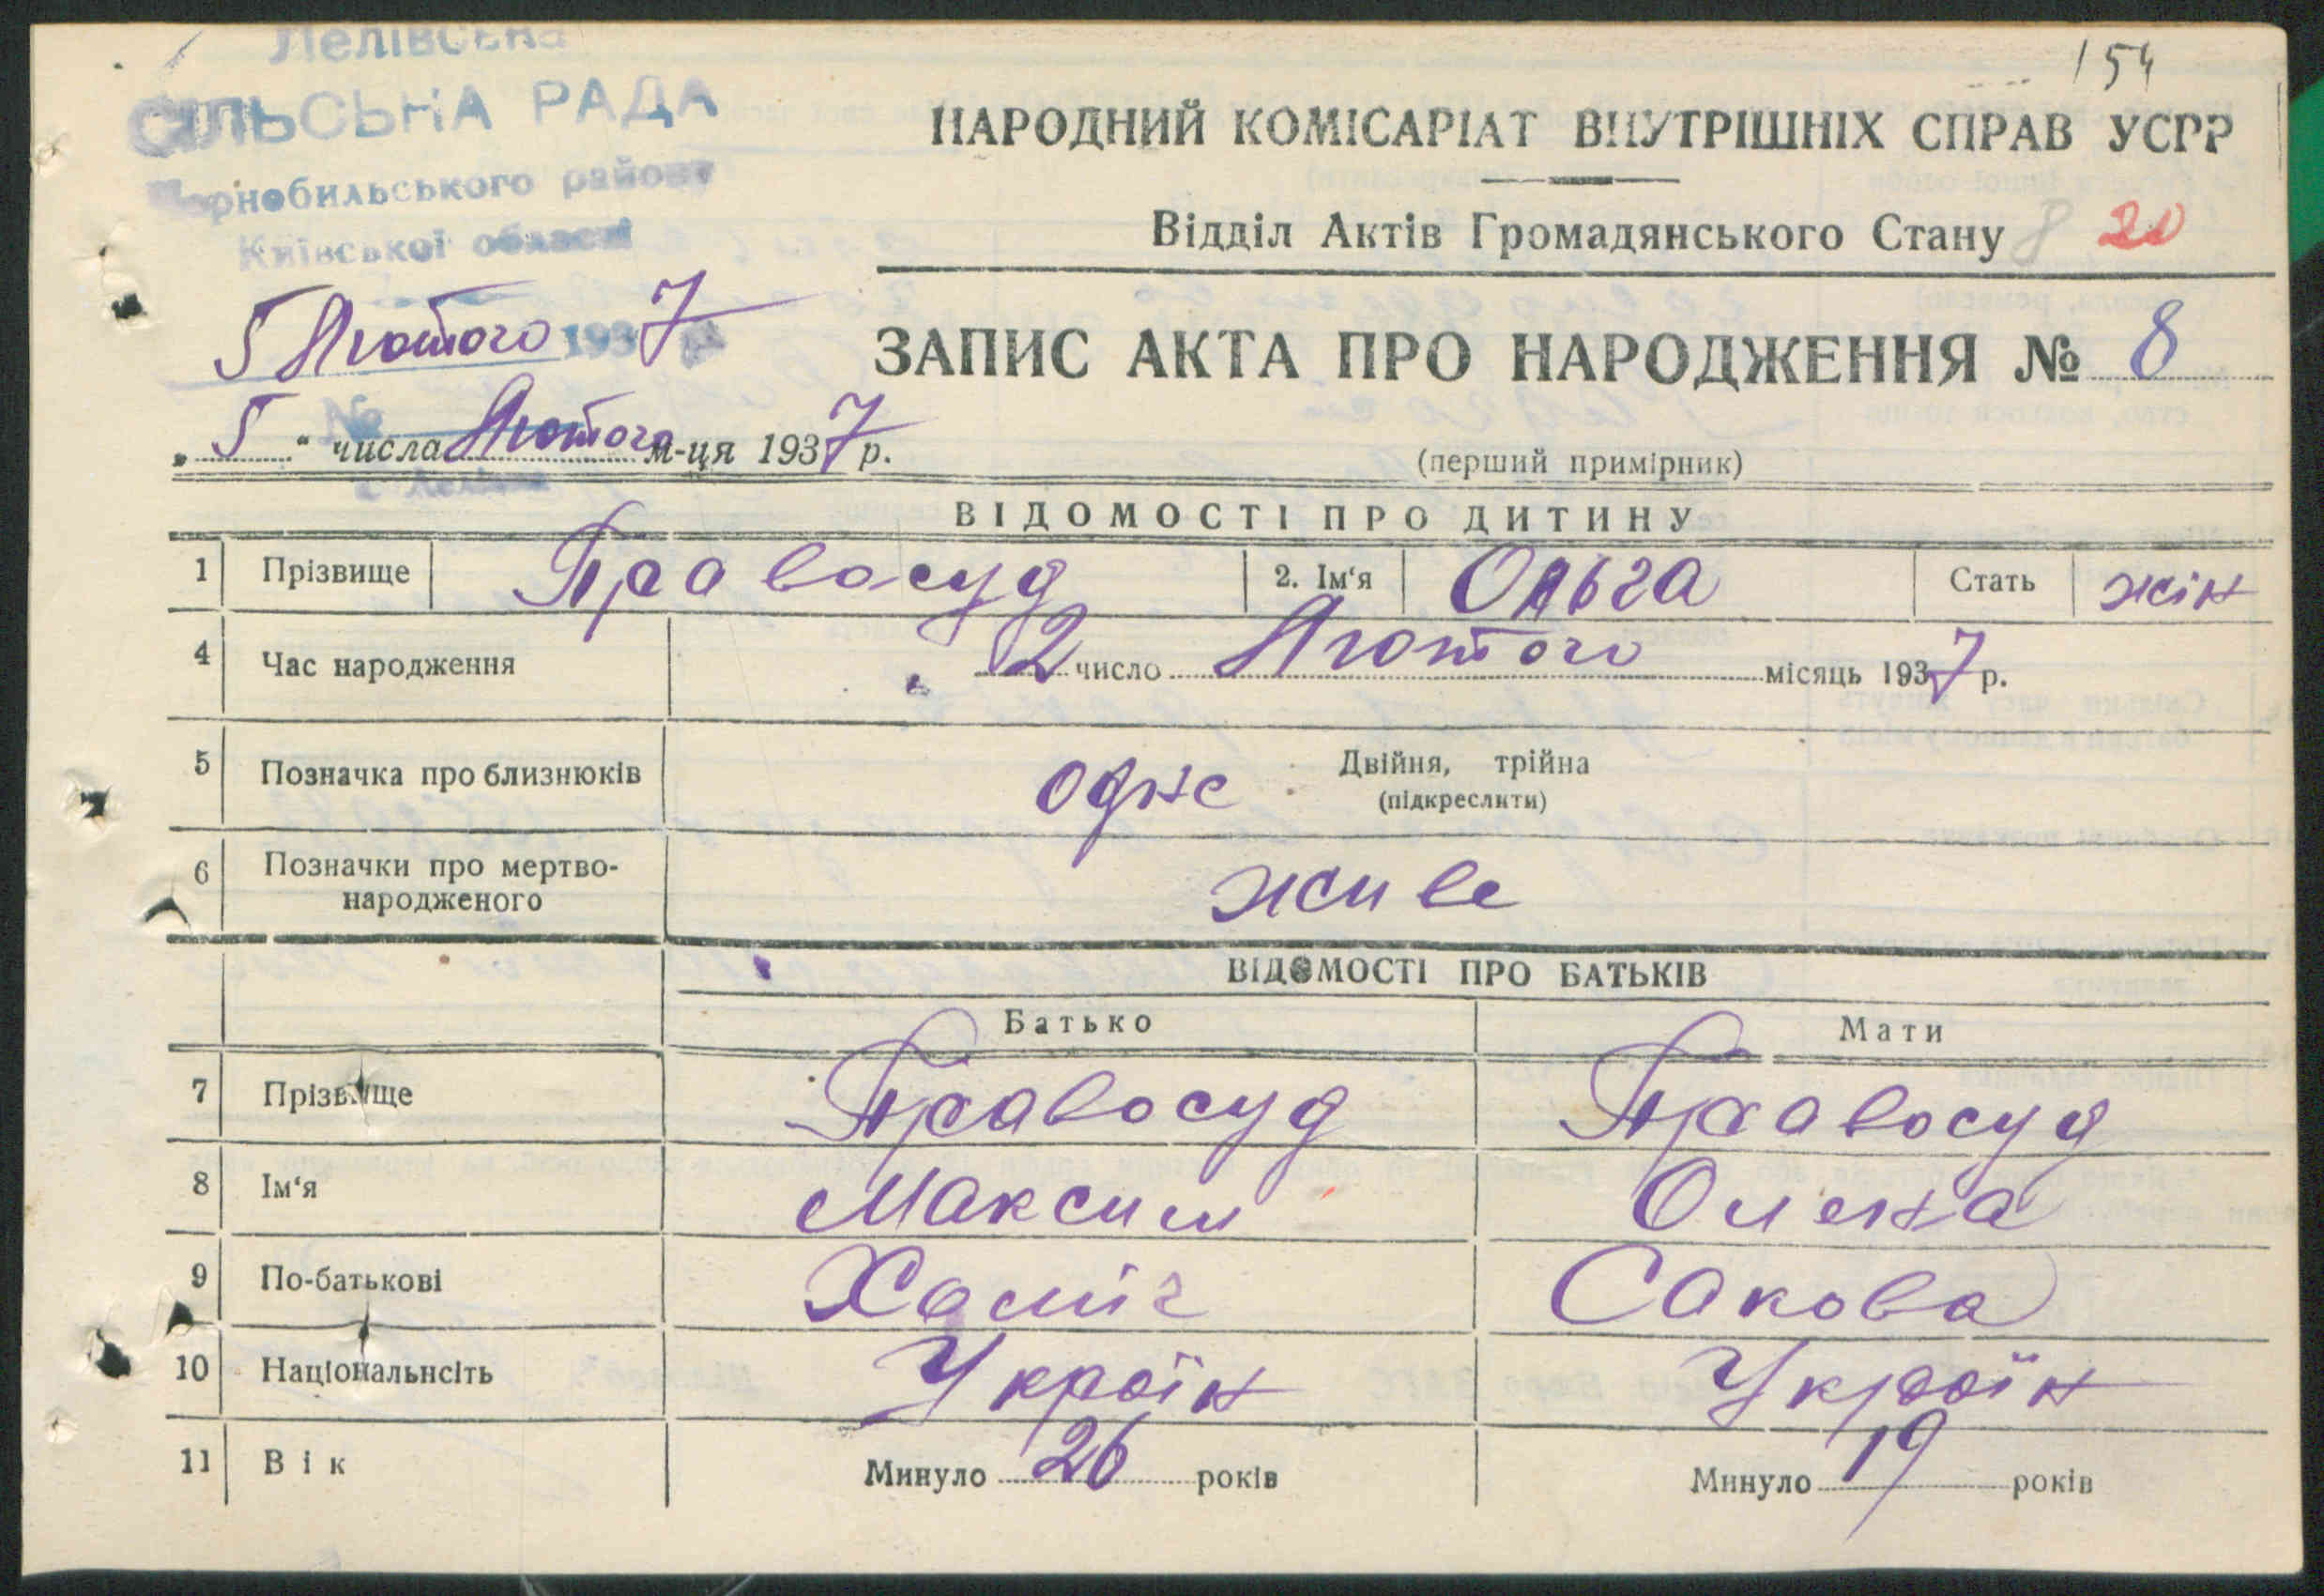 Лелівська
СІЛЬСЬКА РАДА
Чорнобильського району
Київської області
154
НАРОДНИЙ КОМІСАРІАТ ВНУТРІШНІХ СПРАВ УСРР
Відділ Актів Громадянського Стану 8 20
5 Лютого 1937
ЗАПИС АКТА ПРО НАРОДЖЕННЯ № 8
№
„5“ числа Лютого м-ця 1937 р.
(перший примірник)
ВІДОМОСТІ ПРО ДИТИНУ
1 Прізвище Правосуд 2. Ім‘я Ольга Стать жін
4 Час народження 2 число Лютого місяць 1937 р.
5 Позначка про близнюків одне Двійня, трійна
(підкреслити)
6 Позначки про мертво-
народженого живе
ВІДОМОСТІ ПРО БАТЬКІВ
Батько Мати
7 Прізвище Правосуд Правосуд
8 Ім‘я Максим Олена
9 По-батькові Сакова
10 Націона­льнсіть Україн Україн
11 Вік Минуло 26 років Минуло 19 років